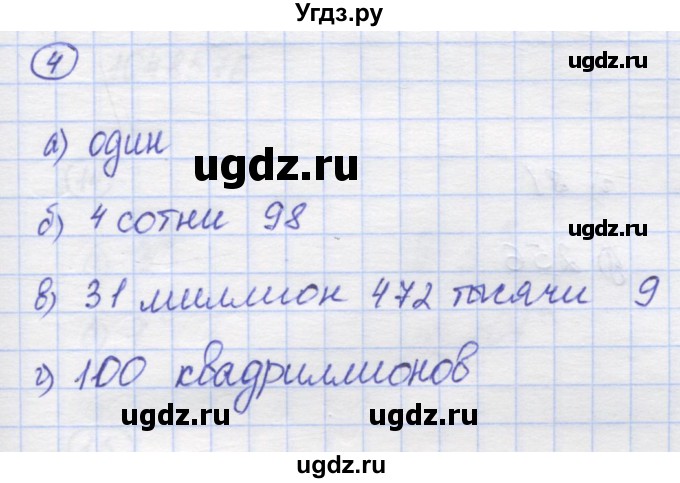 Угдз.ру
4
ugdz.ru
а) один
ugdz.ru
б) 4 сотни 98
ugdz.ru
в) 31 миллион 472 тысячи 9
г) 100 квадриллионов
ugdz.ru ugdz.ru
ugdz.ru